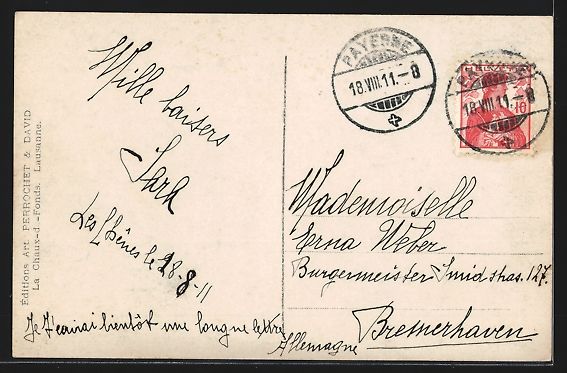 Éditions Art. PERROCHET & DAVID
La Chaux-d-Fonds. Lausanne.
Mille baisers
Les Chênes le 18-8-11
Je t'ecrirai bientôt une longue lettre
PAYERNE
18.VIII.11.–8
PAYERNE
18.VIII.11.–8
HELVETIA
10
Mademoiselle
Erna Weber
Burgermeister Smidstras. 127.
Bremerhaven
Allemagne